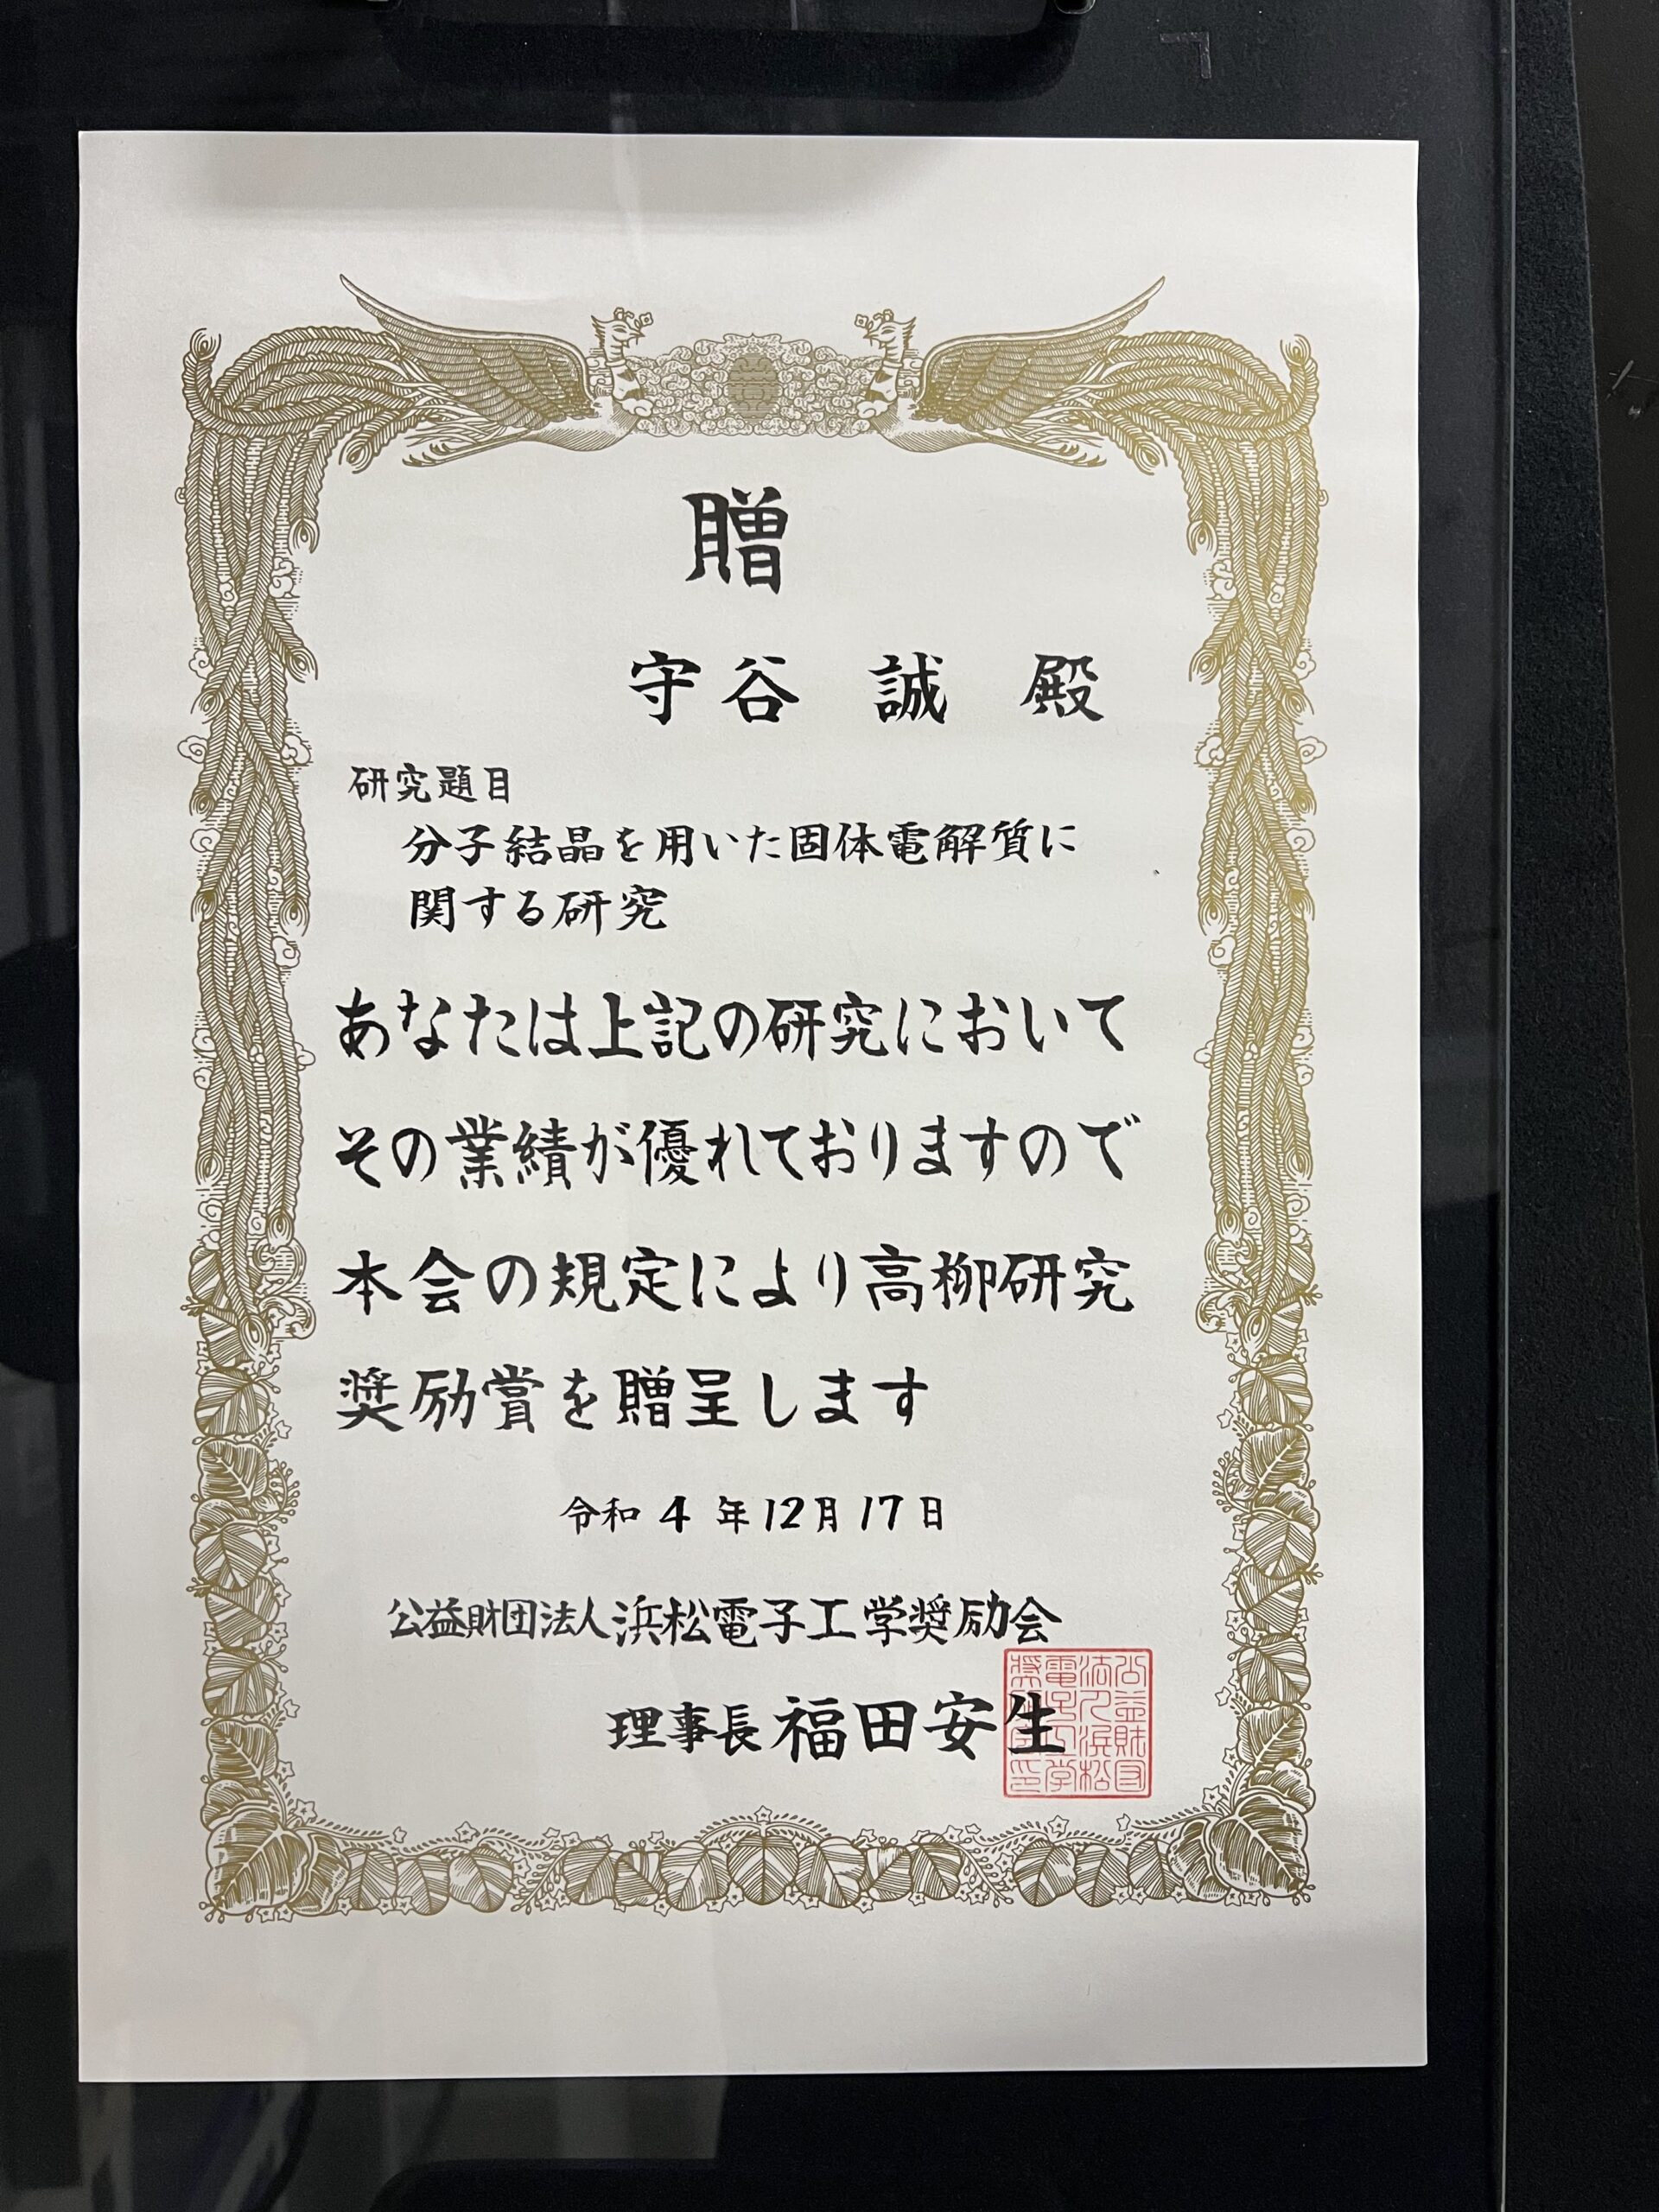 贈
守谷 誠 殿
研究題目
分子結晶を用いた固体電解質に
関する研究
あなたは上記の研究において
その業績が優れておりますので
本会の規定により高柳研究
奨励賞を贈呈します
令和4年12月17日
公益財団法人浜松電子工学奨励会
理事長 福田安生